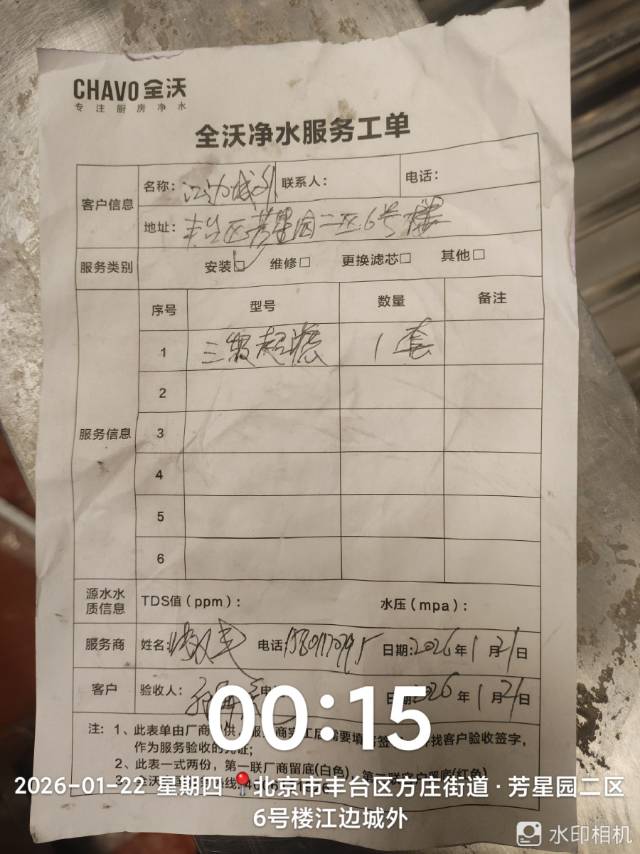 CHAVO 全沃
专注厨房净水
全沃净水服务工单
客户信息 名称：江边城外 联系人： 电话：
地址：丰台区芳星园二区6号楼
服务类别 安装☑ 维修□ 更换滤芯□ 其他□
服务信息 序号 型号 数量 备注
1 三级超滤 1套
2
3
4
5
6
源水水质信息 TDS值（ppm）： 水压（mpa）：
服务商 姓名： 电话 日期：2026年1月21日
客户 验收人： 2026年1月21日
00:15
注：1、此表单由厂商 供 服 商完工后需要填 签 找客户验收签字，
作为服务验收的凭证；
2、此表一式两份，第一联厂商留底(白色)，第二联客户留底(红色)
3、全沃
2026-01-22 星期四 北京市丰台区方庄街道·芳星园二区
6号楼江边城外
水印相机